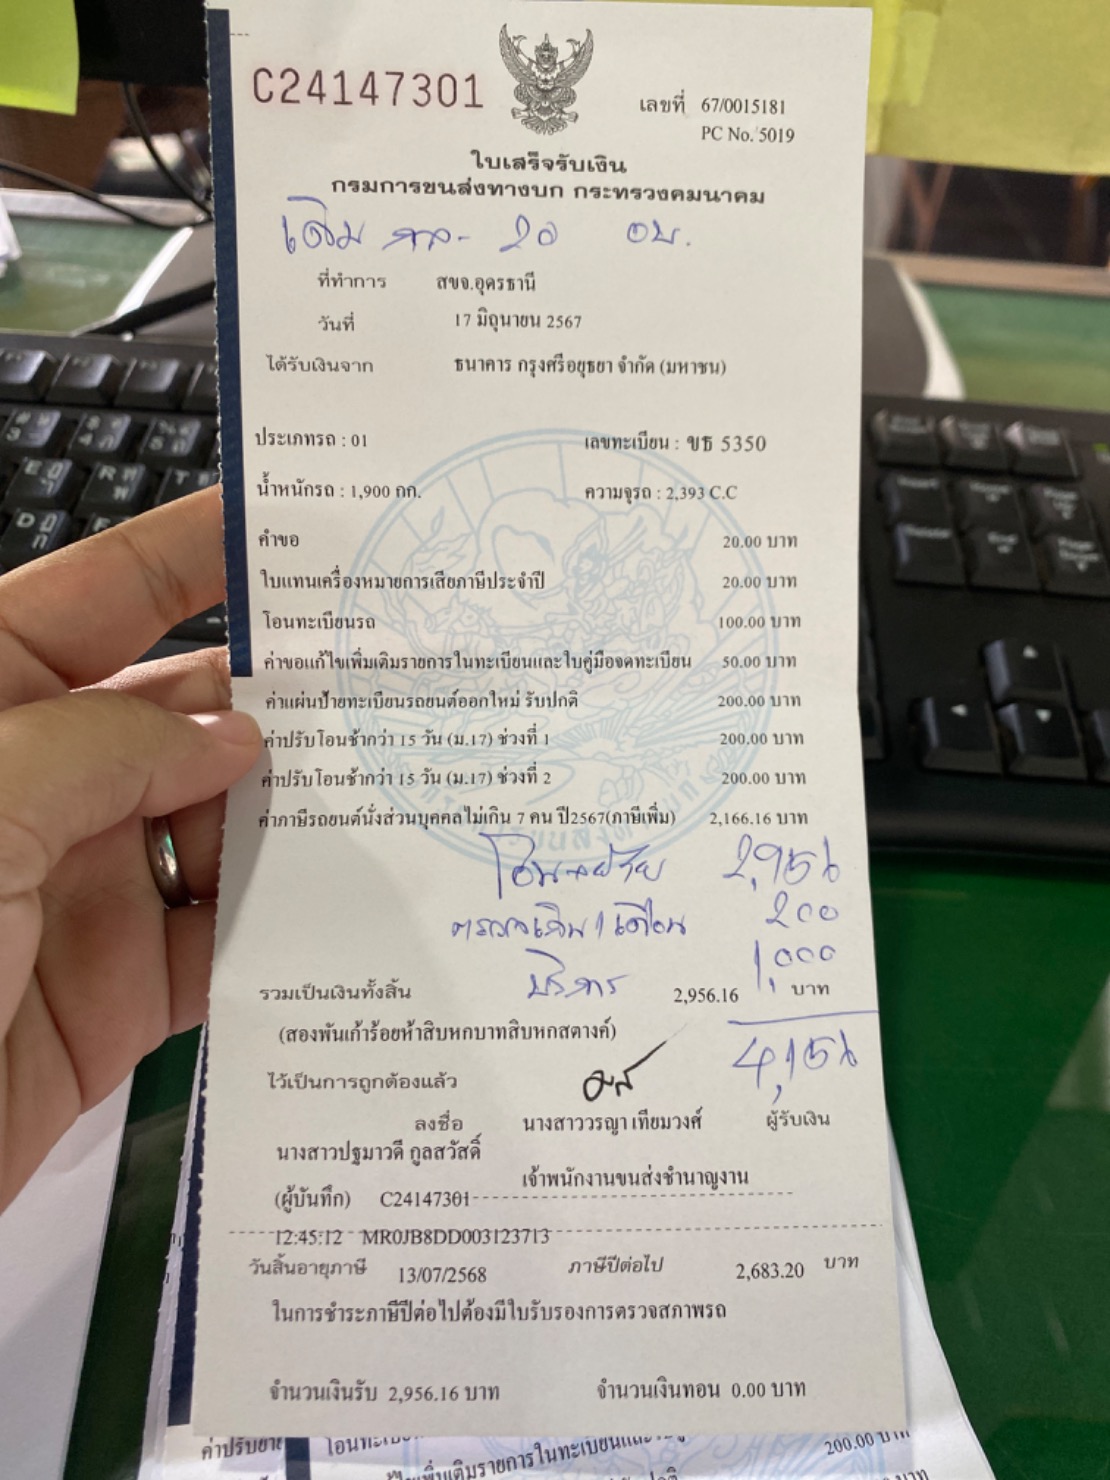 C24147301
เลขที่ 67/0015181
PC No. 5019
ใบเสร็จรับเงิน
กรมการขนส่งทางบก กระทรวงคมนาคม
เดิม กล - 20 อบ.
ที่ทำการ สขจ.อุดรธานี
วันที่ 17 มิถุนายน 2567
ได้รับเงินจาก ธนาคาร กรุงศรีอยุธยา จำกัด (มหาชน)
ประเภทรถ : 01 เลขทะเบียน : ขธ 5350
น้ำหนักรถ : 1,900 กก. ความจุรถ : 2,393 C.C
คำขอ 20.00 บาท
ใบแทนเครื่องหมายการเสียภาษีประจำปี 20.00 บาท
โอนทะเบียนรถ 100.00 บาท
ค่าขอแก้ไขเพิ่มเติมรายการในทะเบียนและใบคู่มือจดทะเบียน 50.00 บาท
ค่าแผ่นป้ายทะเบียนรถยนต์ออกใหม่ รับปกติ 200.00 บาท
ค่าปรับโอนช้ากว่า 15 วัน (ม.17) ช่วงที่ 1 200.00 บาท
ค่าปรับโอนช้ากว่า 15 วัน (ม.17) ช่วงที่ 2 200.00 บาท
ค่าภาษีรถยนต์นั่งส่วนบุคคลไม่เกิน 7 คน ปี2567(ภาษีเพิ่ม) 2,166.16 บาท
2,956
200
บริการ 1,000
รวมเป็นเงินทั้งสิ้น 2,956.16 บาท
(สองพันเก้าร้อยห้าสิบหกบาทสิบหกสตางค์)
4,156
ไว้เป็นการถูกต้องแล้ว
ลงชื่อ นางสาววรญา เทียมวงศ์ ผู้รับเงิน
นางสาวปฐมาวดี กูลสวัสดิ์
เจ้าพนักงานขนส่งชำนาญงาน
(ผู้บันทึก) C24147301
12:45:12 MR0JB8DD003123713
วันสิ้นอายุภาษี 13/07/2568 ภาษีปีต่อไป 2,683.20 บาท
ในการชำระภาษีปีต่อไปต้องมีใบรับรองการตรวจสภาพรถ
จำนวนเงินรับ 2,956.16 บาท จำนวนเงินทอน 0.00 บาท
200.00 บาท